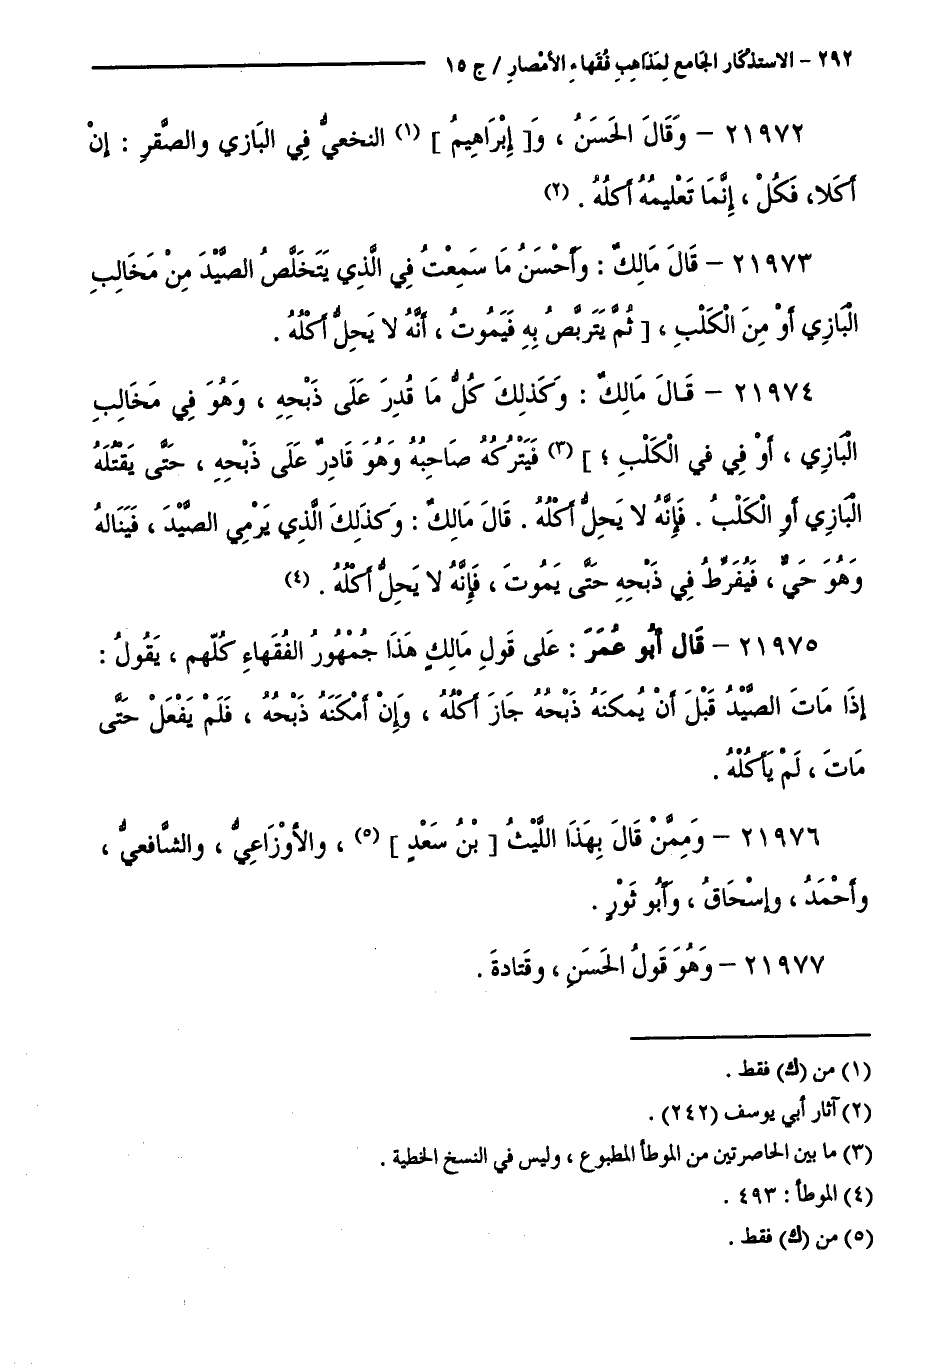 ٢٩٢ - الاستذكار الجامع لِمَذاهِبِ فُقَهاءِ الأمْصارِ / ج ١٥
٢١٩٧٢ – وَقَالَ الحَسَنُ ، وَ[ إِبْرَاهِيمُ ] (١) النخعيُّ فِي البَازي والصَّقرِ : إنْ
أكَلا، فَكُلْ ، إِنَّمَا تَعْلِيمُهُ أكلُهُ . (٢)
٢١٩٧٣ – قَالَ مَالِكٌ : وَأَحْسَنُ مَا سَمِعْتُ فِي الَّذِي يَتَخَلَّصُ الصَّيْدَ مِنْ مَخَالِبِ
الْبَازِي أَوْ مِنَ الْكَلْبِ ، [ ثُمَّ يَتَرَبَّصُ بِهِ فَيَمُوتُ ، أَنَّهُ لا يَحِلُّ أَكْلُهُ .
٢١٩٧٤ – قَالَ مَالِكٌ : وَكَذلِكَ كُلُّ مَا قُدِرَ عَلَى ذَبْحِهِ ، وَهُوَ فِي مَخَالِبِ
الْبَازِي ، أَوْ فِي في الْكَلْبِ ؛ ] (٣) فَيَتْرُكُهُ صَاحِبُهُ وَهُوَ قَادِرٌ عَلَى ذَبْحِهِ ، حَتَّى يَقْتُلَهُ
الْبَازِي أَوِ الْكَلْبُ . فَإِنَّهُ لا يَحِلُّ أَكْلُهُ . قَالَ مَالِكٌ : وَكَذَلِكَ الَّذِي يَرْمِي الصَّيْدَ ، فَيَنَالهُ
وَهُوَ حَيٌّ ، فَيُفَرِّطُ فِي ذَبْحِهِ حَتَّى يَمُوتَ ، فَإِنَّهُ لا يَحِلُّ أَكْلُهُ . (٤)
٢١٩٧٥ – قَال أبُو عُمَرَ : عَلى قَولِ مَالِكٍ هَذَا جُمْهُورُ الفُقَهاءِ كُلّهم ، يَقُولُ :
إذَا مَاتَ الصَّيْدُ قَبْلَ أَنْ يُمكنَهُ ذَبْحُهُ جَازَ أكْلُهُ ، وَإِنْ أمْكَنَهُ ذَبْحُه ، فَلَمْ يَفْعَلْ حَتَّى
مَاتَ ، لَمْ يَأكُلْهُ .
٢١٩٧٦ – وَمِمَّنْ قَالَ بِهَذَا اللَّيْثُ [ بْنُ سَعْدٍ ] (٥) ، والأوْزَاعِيُّ ، والشَّافعيُّ ،
وأحْمَدُ ، وإسْحَاقُ ، وَأَبُو ثَوْرٍ .
٢١٩٧٧ – وَهُوَ قَولُ الحَسَنِ ، وقَتادةَ .
(١) من (ك) فقط .
(٢) آثار أبي يوسف (٢٤٢) .
(٣) ما بين الحاصرتين من الموطأ المطبوع ، وليس في النسخ الخطية .
(٤) الموطأ : ٤٩٣ .
(٥) من (ك) فقط .